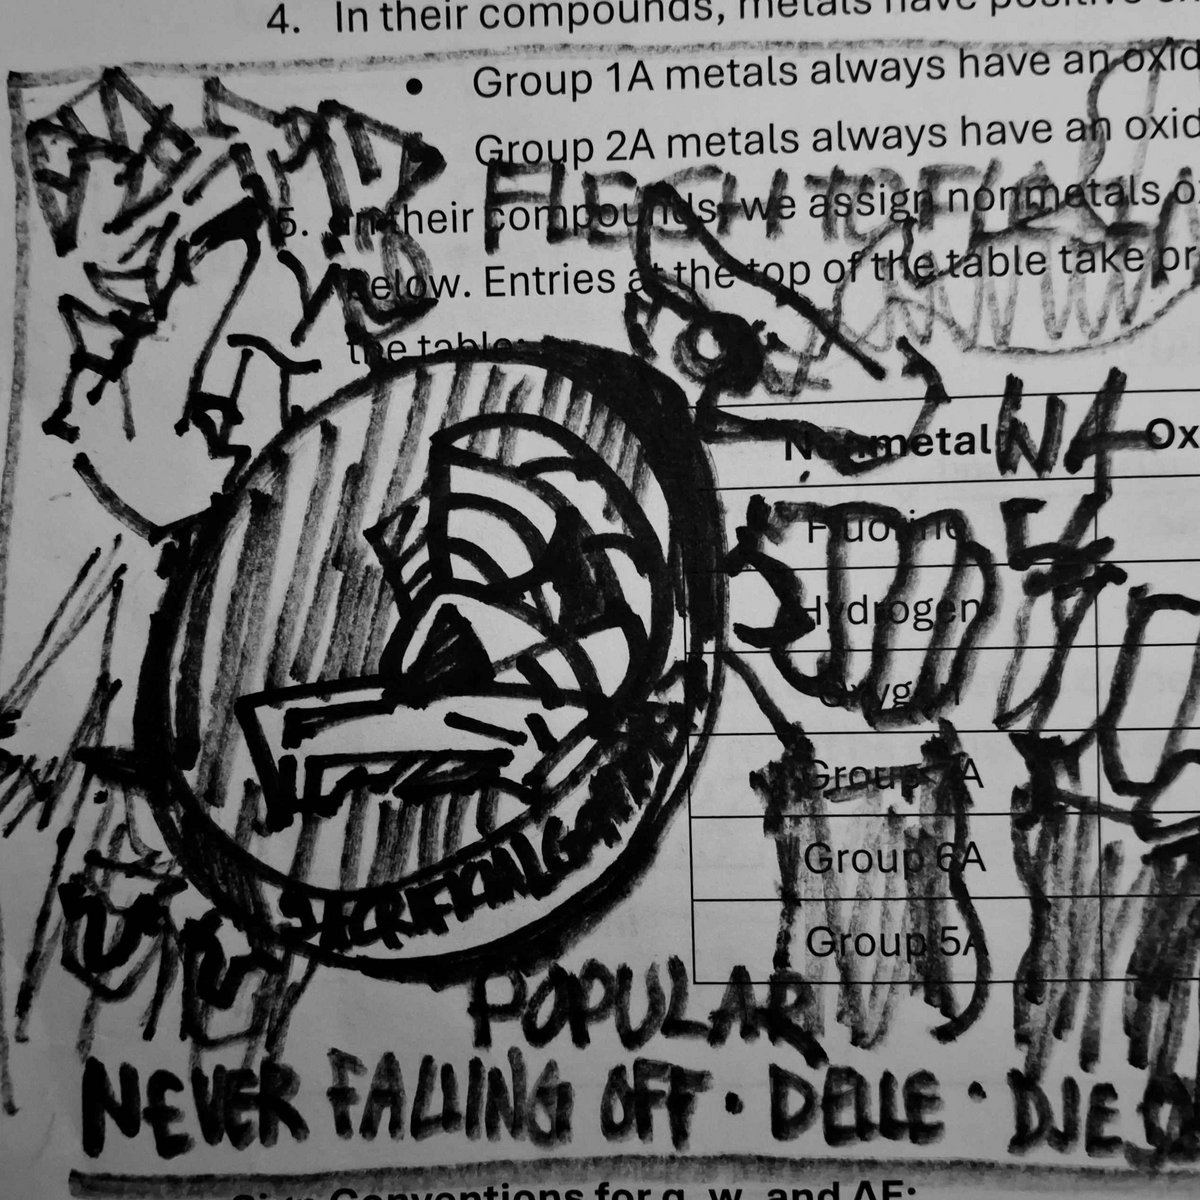 4. In their compounds, metals have positive
• Group 1A metals always have an oxid
Group 2A metals always have an oxid
FLESH TO
5. In their compounds, we assign nonmetals
below. Entries at the top of the table take pr
the table:
Nonmetal Ox
Fluorine
Hydrogen
Oxygen
Group 7A
Group 6A
Group 5A
SACRIFICIAL
POPULAR
NEVER FALLING OFF • DELLE • DIE
Sign Conventions for q, w, and ΔE: